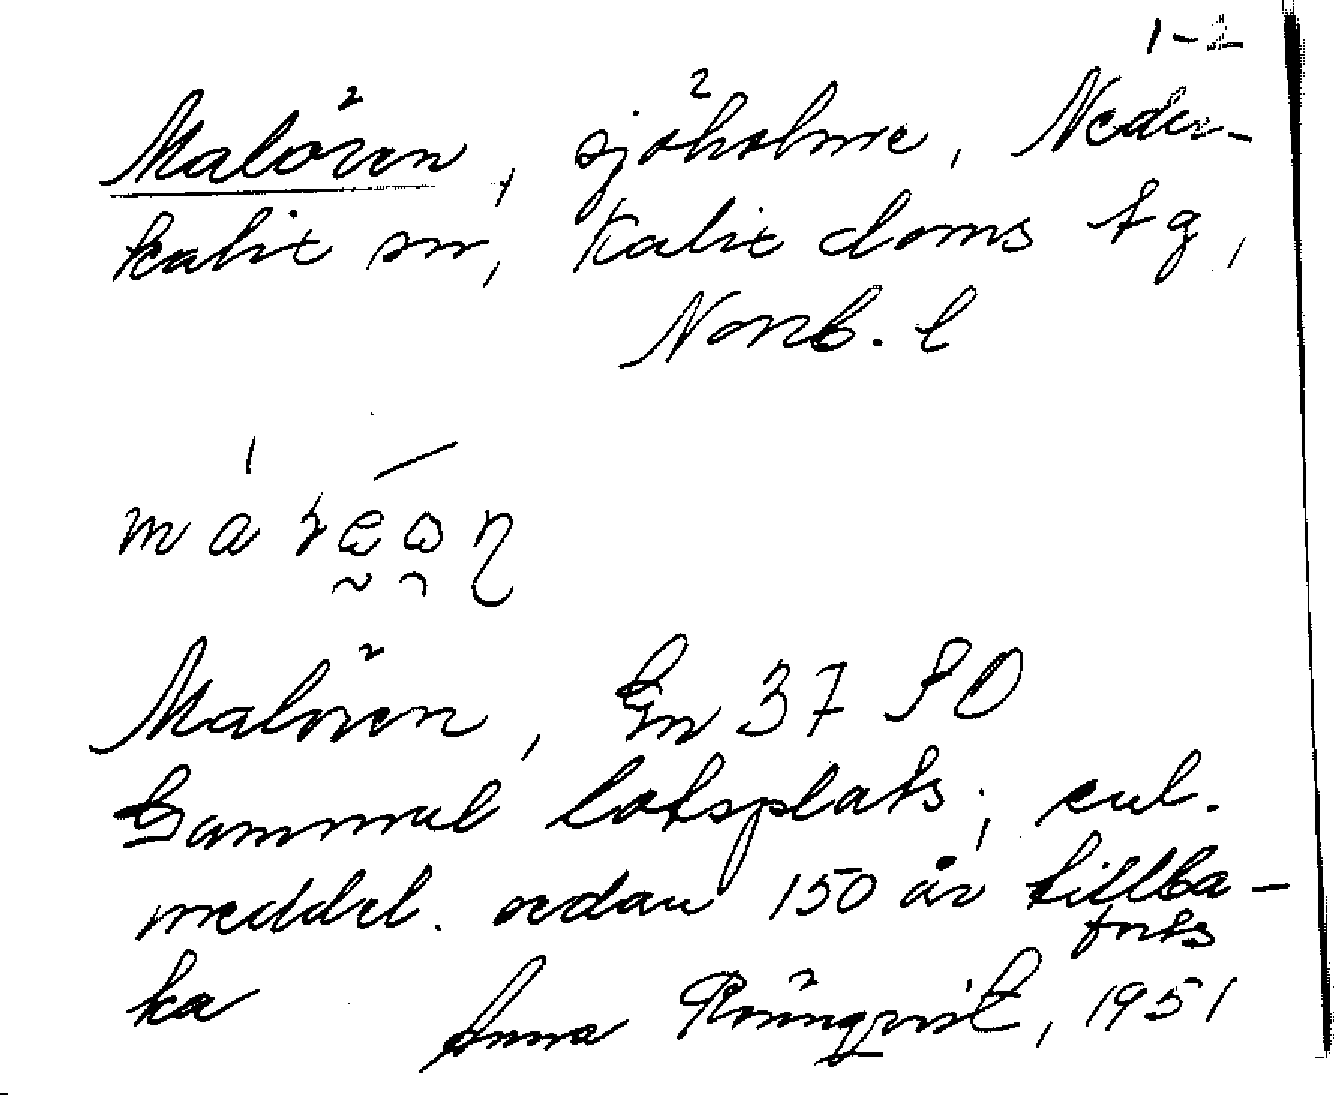 1-2
Malören, sjöholme, Neder-
kalix sn, Kalix doms tg,
Norrb. l
Malören, Gn 37 SO
Gammal lotsplats, enl.
meddel. sedan 150 år tillba-
ka
forts
Anna Rönnqvist, 1951